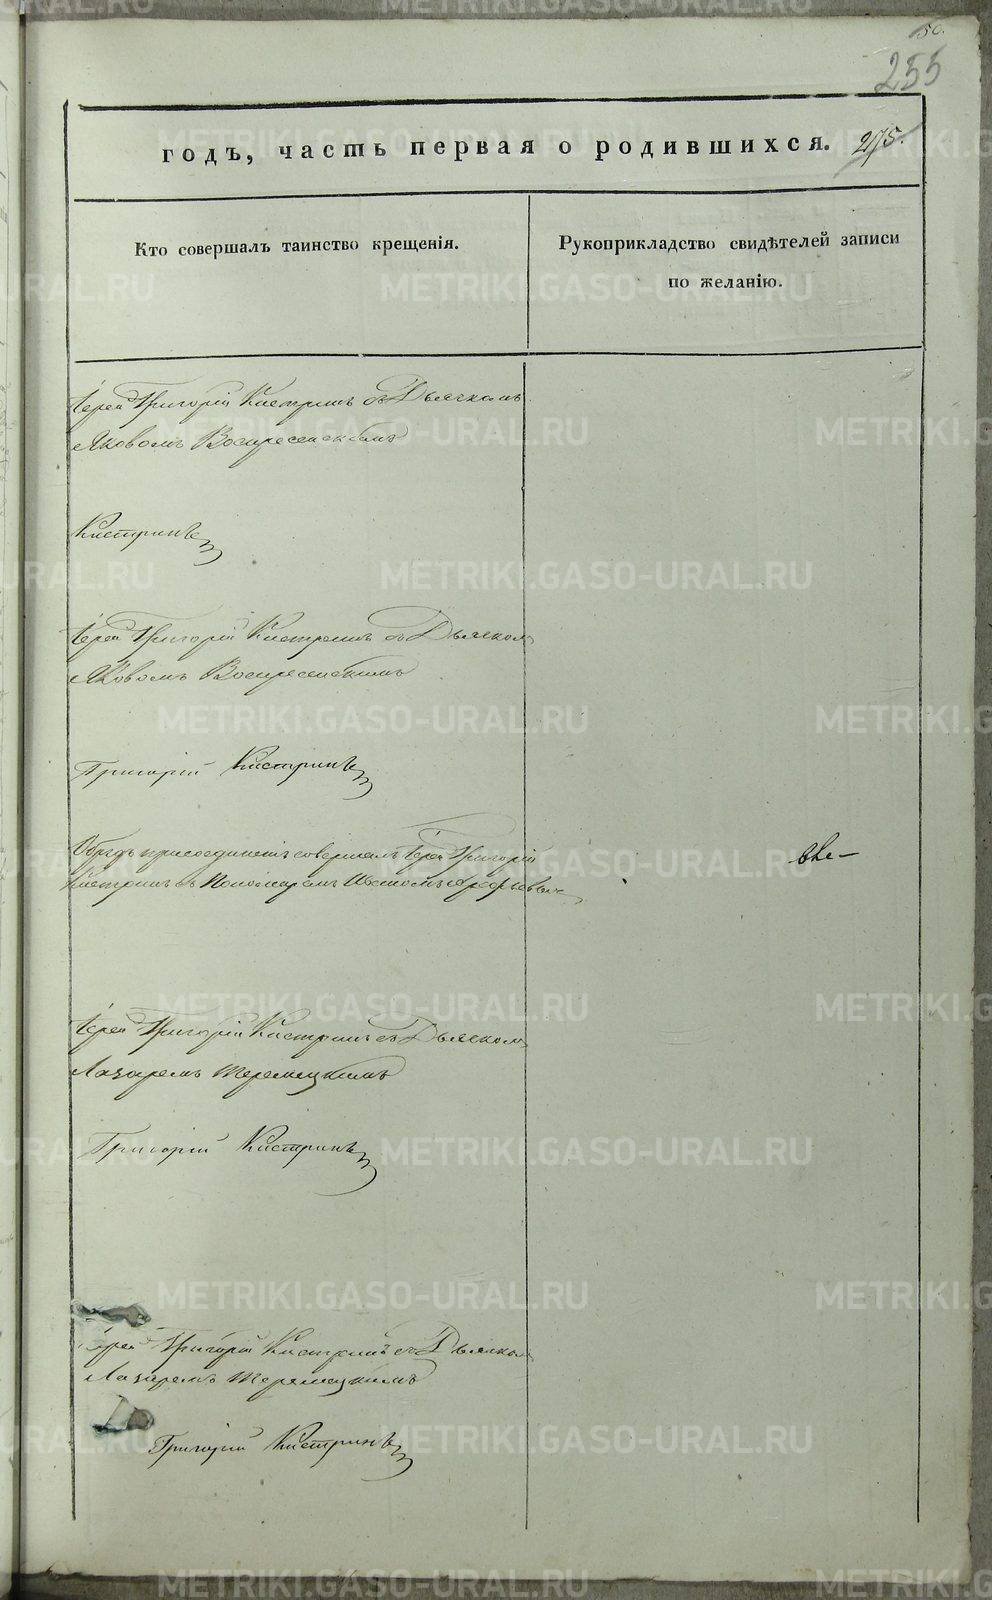 50.
255
годъ, часть первая о родившихся. 275.
Кто совершалъ таинство крещенія.
Рукоприкладство свидѣтелей записи
по желанію.
Іерей Григорій Кистринъ съ Дьячкомъ
Яковомъ Воскресенскимъ
Кистринъ
Іерей Григорій Кистринъ съ Дьячком
Яковомъ Воскресенскимъ
Григорій Кистринъ
Обрядъ присоединенія совершалъ Іерей Григорій
Кистринъ съ Пономаремъ
Іерей Григорій Кистринъ съ Дьячком
Лазаремъ
Григорій Кистринъ
Іерей Григорій Кистринъ съ Дьячком
Лазаремъ
Григорій Кистринъ
METRIKI.GASO-URAL.RU